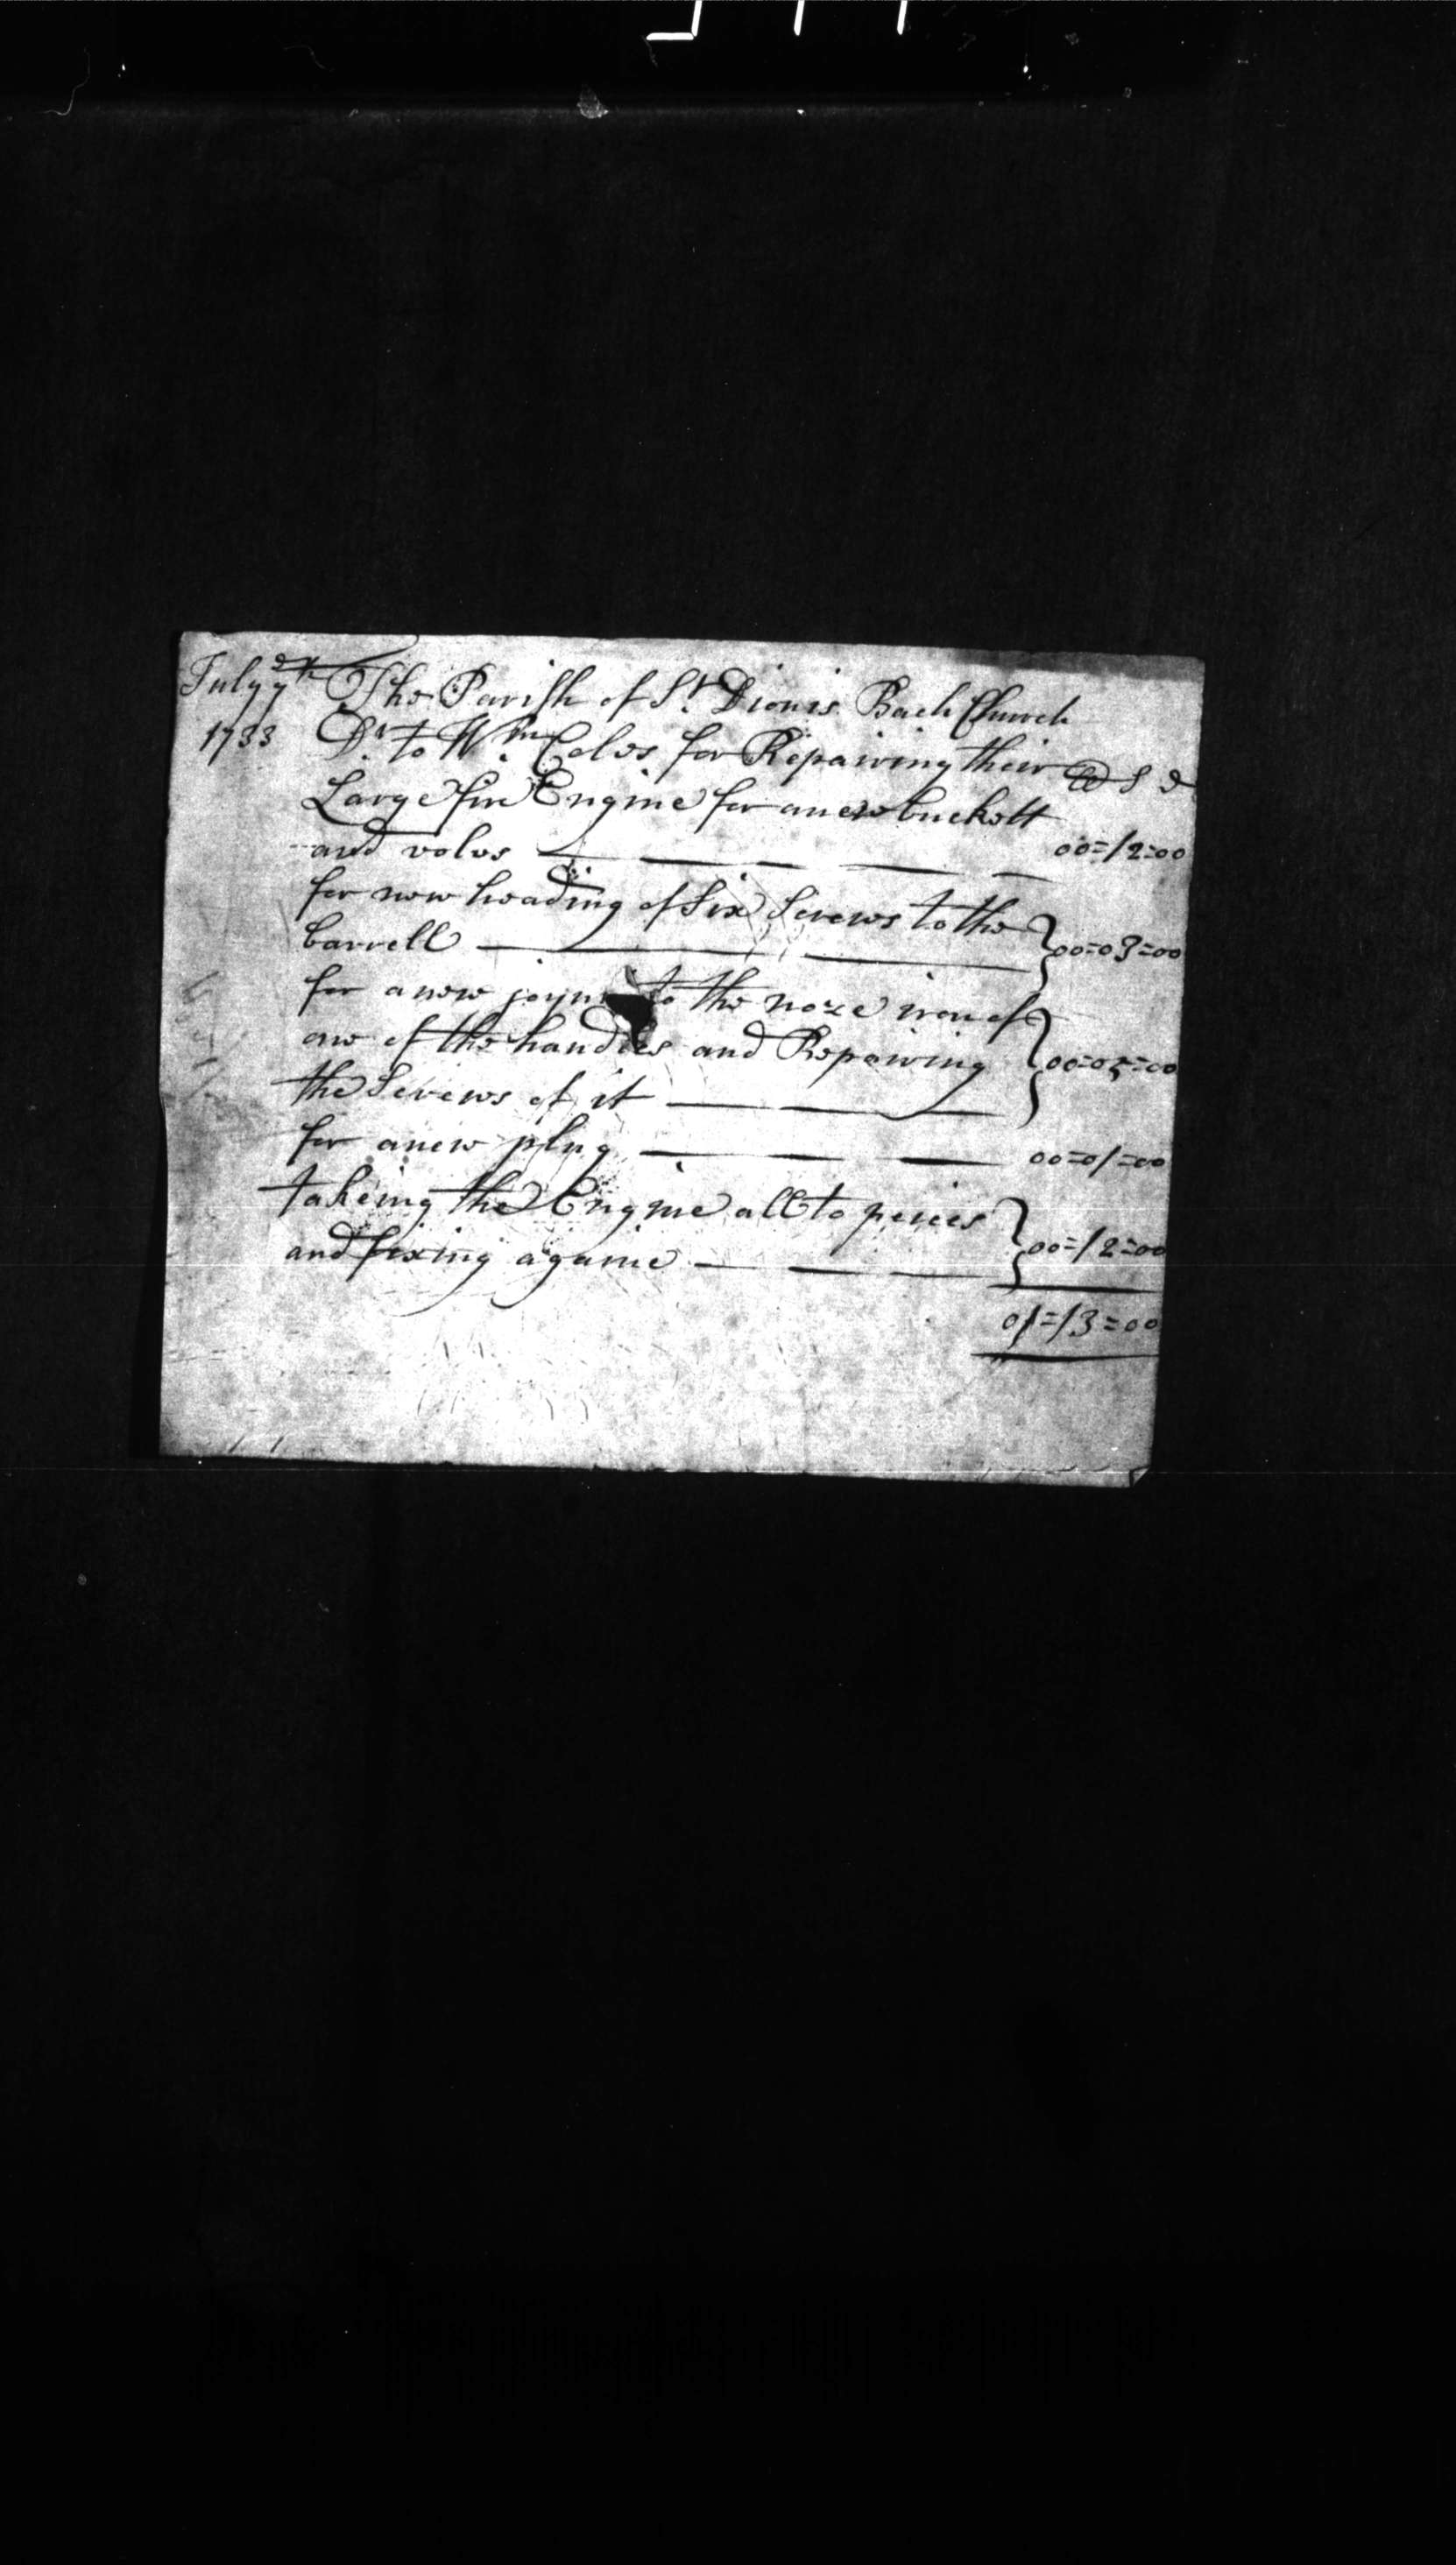 July 7th The Parish of St Dionis Back Church
1733 Dr to Wm Coles for Repairing their £ s d
Large fire Engine for a new buckett
and valve 00=12=00
for new heading of Six Screws to the
barrell 00=03=00
for a new joynt to the noze iron of
one of the handles and Repairing
the Screws of it 00=05=00
for a new plug 00=01=00
takeing the Engine all to peices
and fixing againe 00=12=00
01=13=00